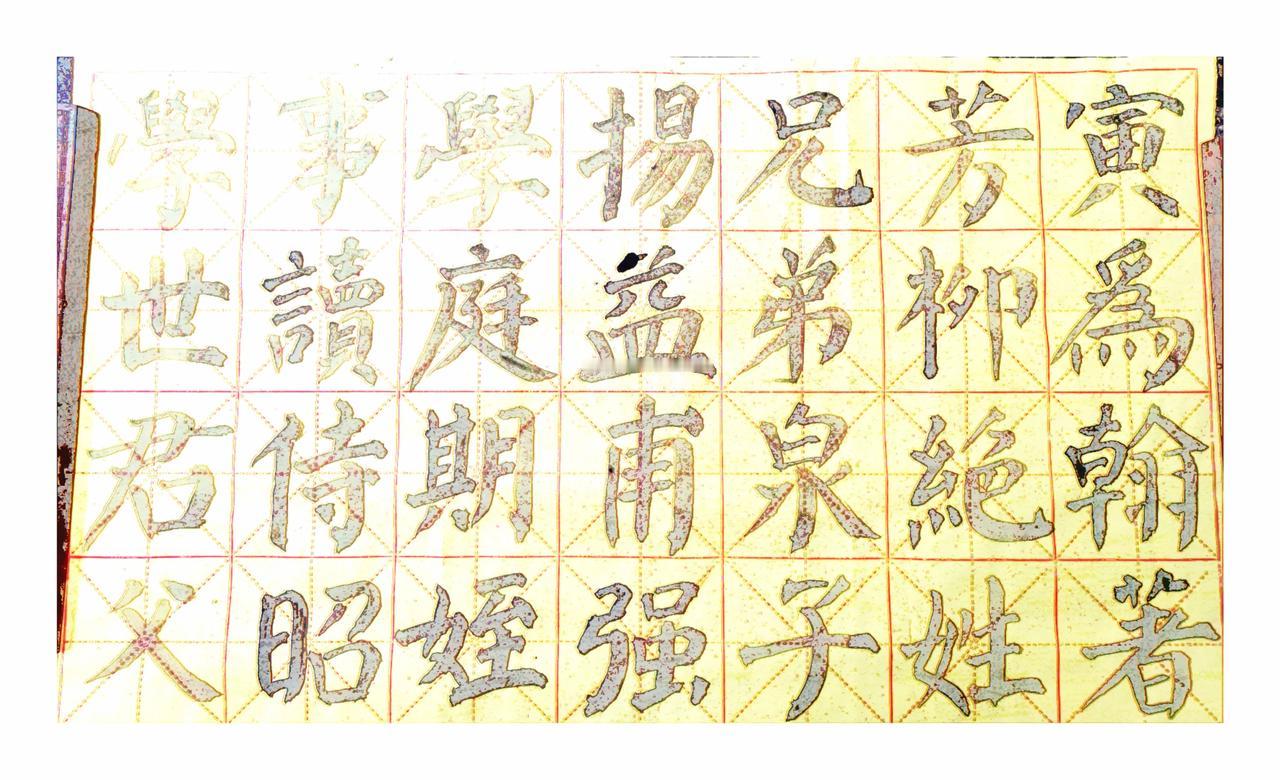 寅為翰著
芳柳絕姓
兄弟泉子
揚益甫强
學庭期姪
事讀侍昭
學世君父